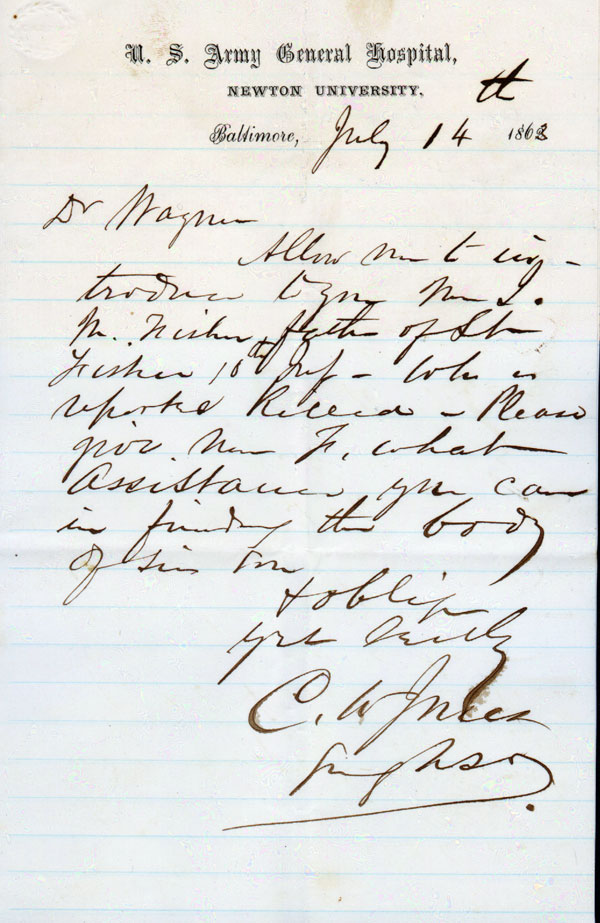 U. S. Army General Hospital,
NEWTON UNIVERSITY.
Baltimore, July 14th 1863
Dr Wagner
Allow me to in-
troduce to you Mr I.
M. Fisher, father of Lt
Fisher 10th Inf - Who is
reported Killed - Please
give Mr F, what
Assistance you can
in finding the body
of his Son
& oblige
yrs truly
C. W Jones
Surg